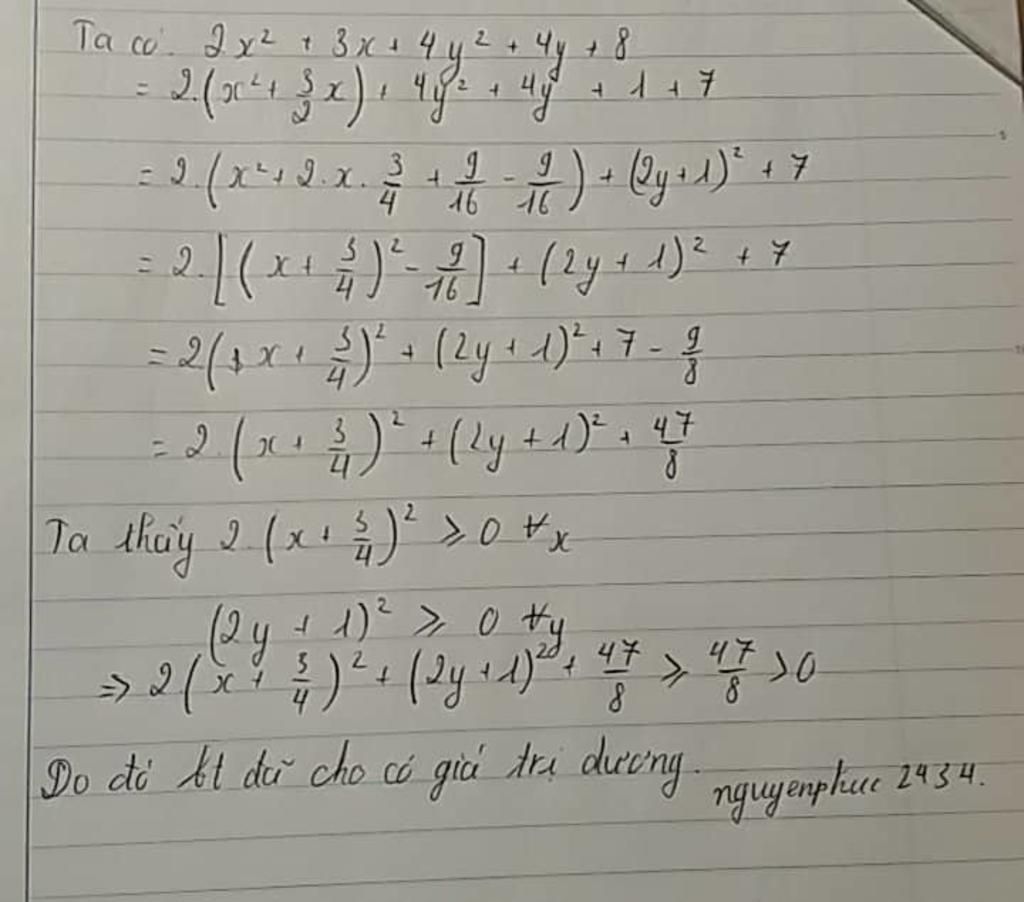 Ta có. 2x² + 3x + 4y² + 4y + 8
= 2.(x² + 3/2 x) + 4y² + 4y + 1 + 7
= 2.(x² + 2.x.3/4 + 9/16 - 9/16) + (2y+1)² + 7
= 2.[(x + 3/4)² - 9/16] + (2y + 1)² + 7
= 2(x + 3/4)² + (2y + 1)² + 7 - 9/8
= 2.(x + 3/4)² + (2y + 1)² + 47/8
Ta thấy 2.(x + 3/4)² ≥ 0 ∀x
(2y + 1)² ≥ 0 ∀y
=> 2(x + 3/4)² + (2y+1)² + 47/8 ≥ 47/8 > 0
Do đó bt đã cho có giá trị dương.
nguyenphuc 2434.